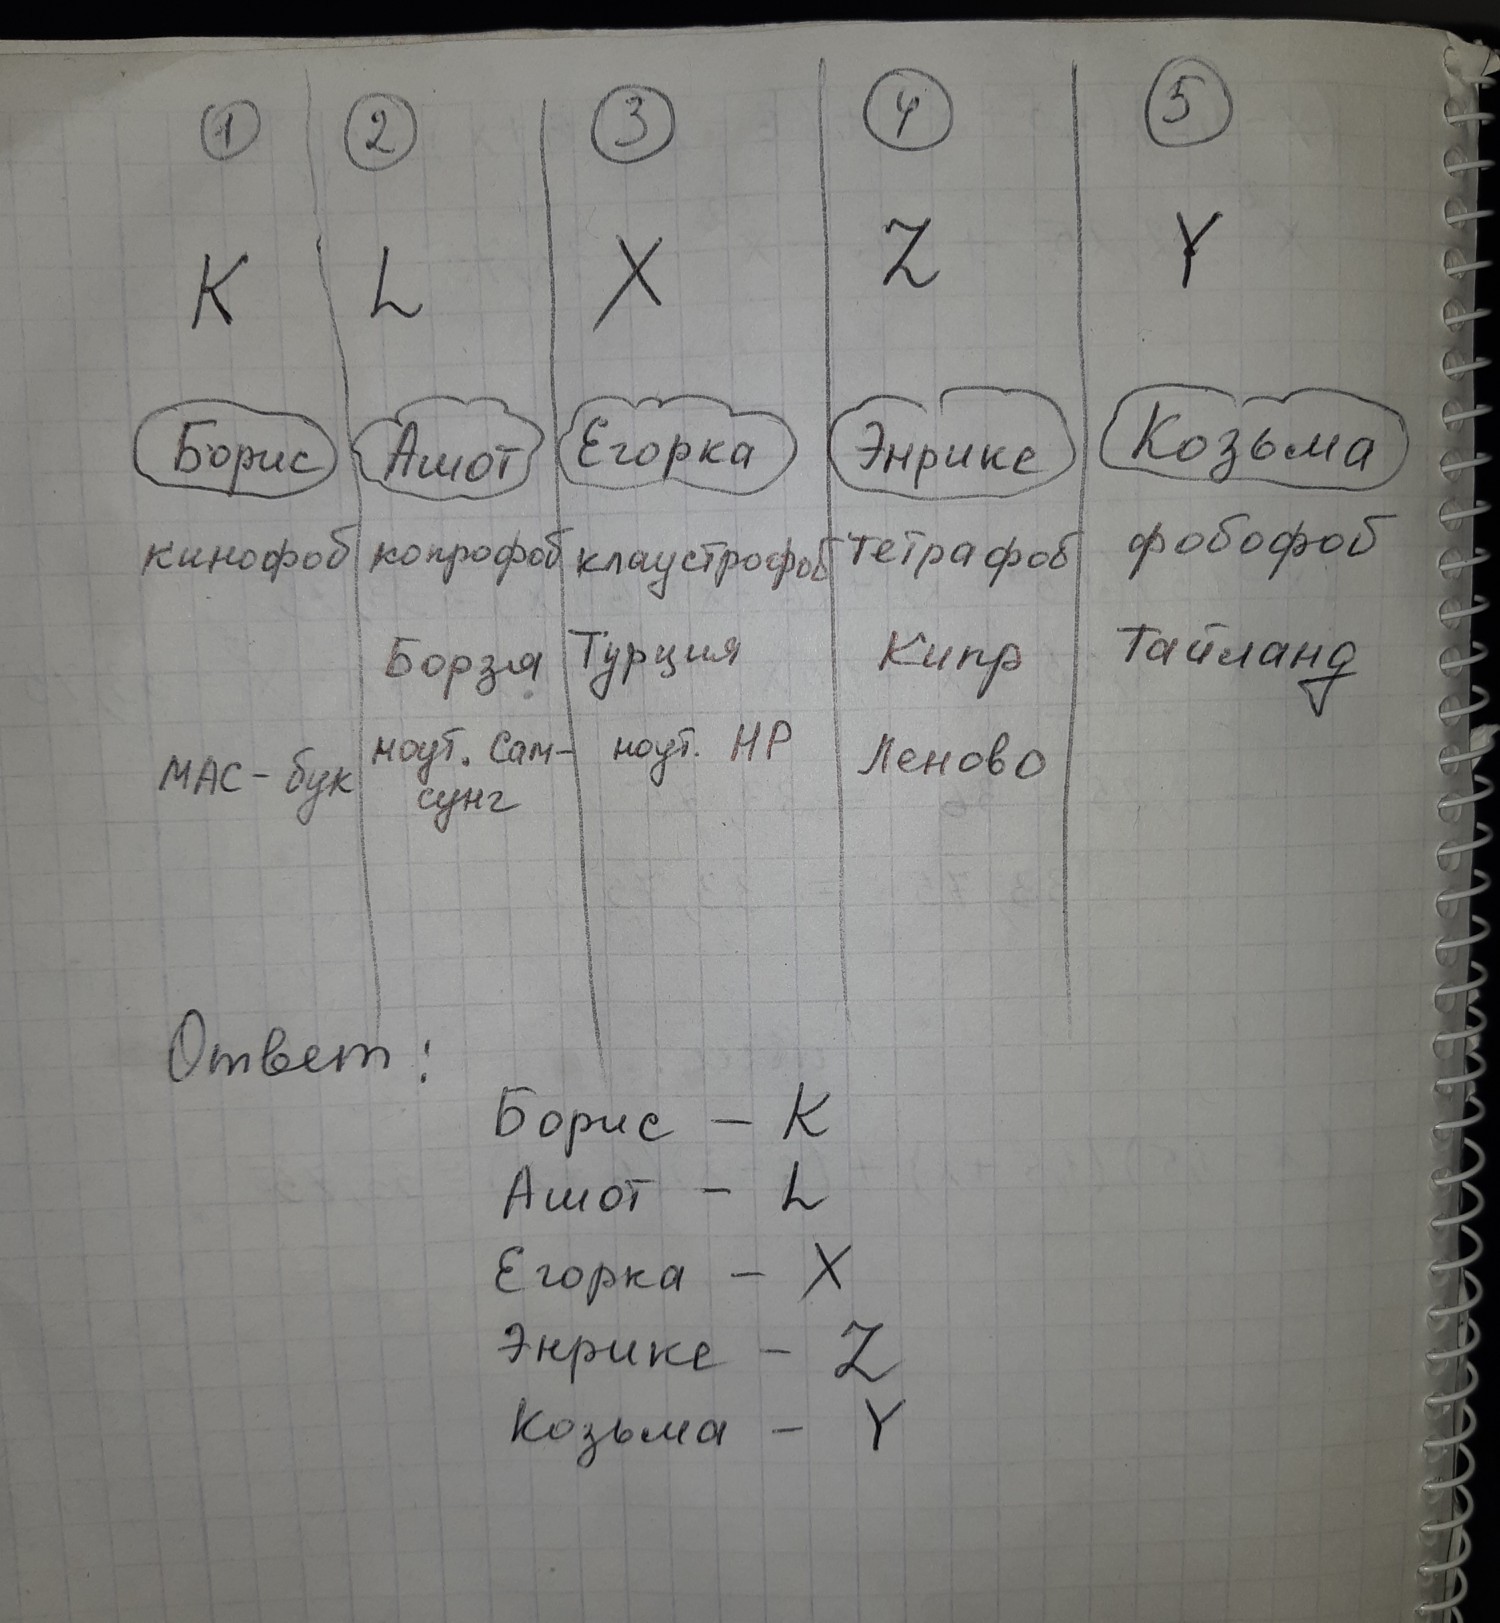 1 2 3 4 5
K L X Z Y
Борис Ашот Егорка Энрике Козьма
кинофоб копрофоб клаустрофоб тетрафоб фобофоб
Борзя Турция Кипр Тайланд
МАС-бук ноут. Сам- ноут. НР Леново
сунг
Ответ:
Борис - K
Ашот - L
Егорка - X
Энрике - Z
Козьма - Y